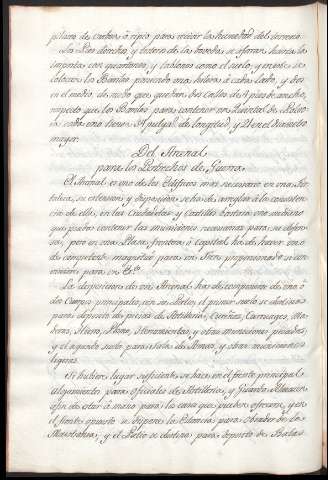 pilares de carbon ó ripio para resistir la humedad del terreno.
Los Pies derechos, y testeros de las bovedas se aforran hasta las
impostas con quartones, y tablones como el suelo, y en este se
colocan los Barriles poniendo una hilera á cada lado, y dos
en el medio, de modo que quedan dos Calles de 4 pies de ancho,
respecto que los Barriles para contener un Quintal de Polvo-
ra cada uno tienen pulgs. de longitud, y 21 en el diametro
mayor.
Del Arsenal
para los Pertrechos de Guerra
El Arsenal es uno de los Edificios mas necesarios en una For-
taleza, su extension y disposicion se ha de arreglar á la consisten-
cia de ella, en las Ciudadelas y Castillos bastará uno mediano
que pueda contener las municiones necesarias para su defen-
sa, pero en una Plaza, frontera ó capital ha de haver uno
de competente magnitud para un Tren proporcionado si con-
viniere para un
La disposicion de un Arsenal ha de componerse de uno ó
dos Cuerpos principales, con su Patio, el primer suelo se destina
para deposito de piezas de Artilleria, Cureñas, Carruages, Ma-
deras, Hierro, Plomo, Herramientas, y otras municiones pesadas,
y el segundo suelo para Sala de Armas, y otras municiones
ligeras.
Si hubiere lugar suficiente se hace en el frente principal
alojamiento para oficiales de Artilleria, y Guarda Almacen
afin de estar á mano para los casos que pueden ofrecerse, y en
el frente opuesto se dispone la Estancia para obrador de la
Maestranza, y el Patio se destina para deposito de Balas